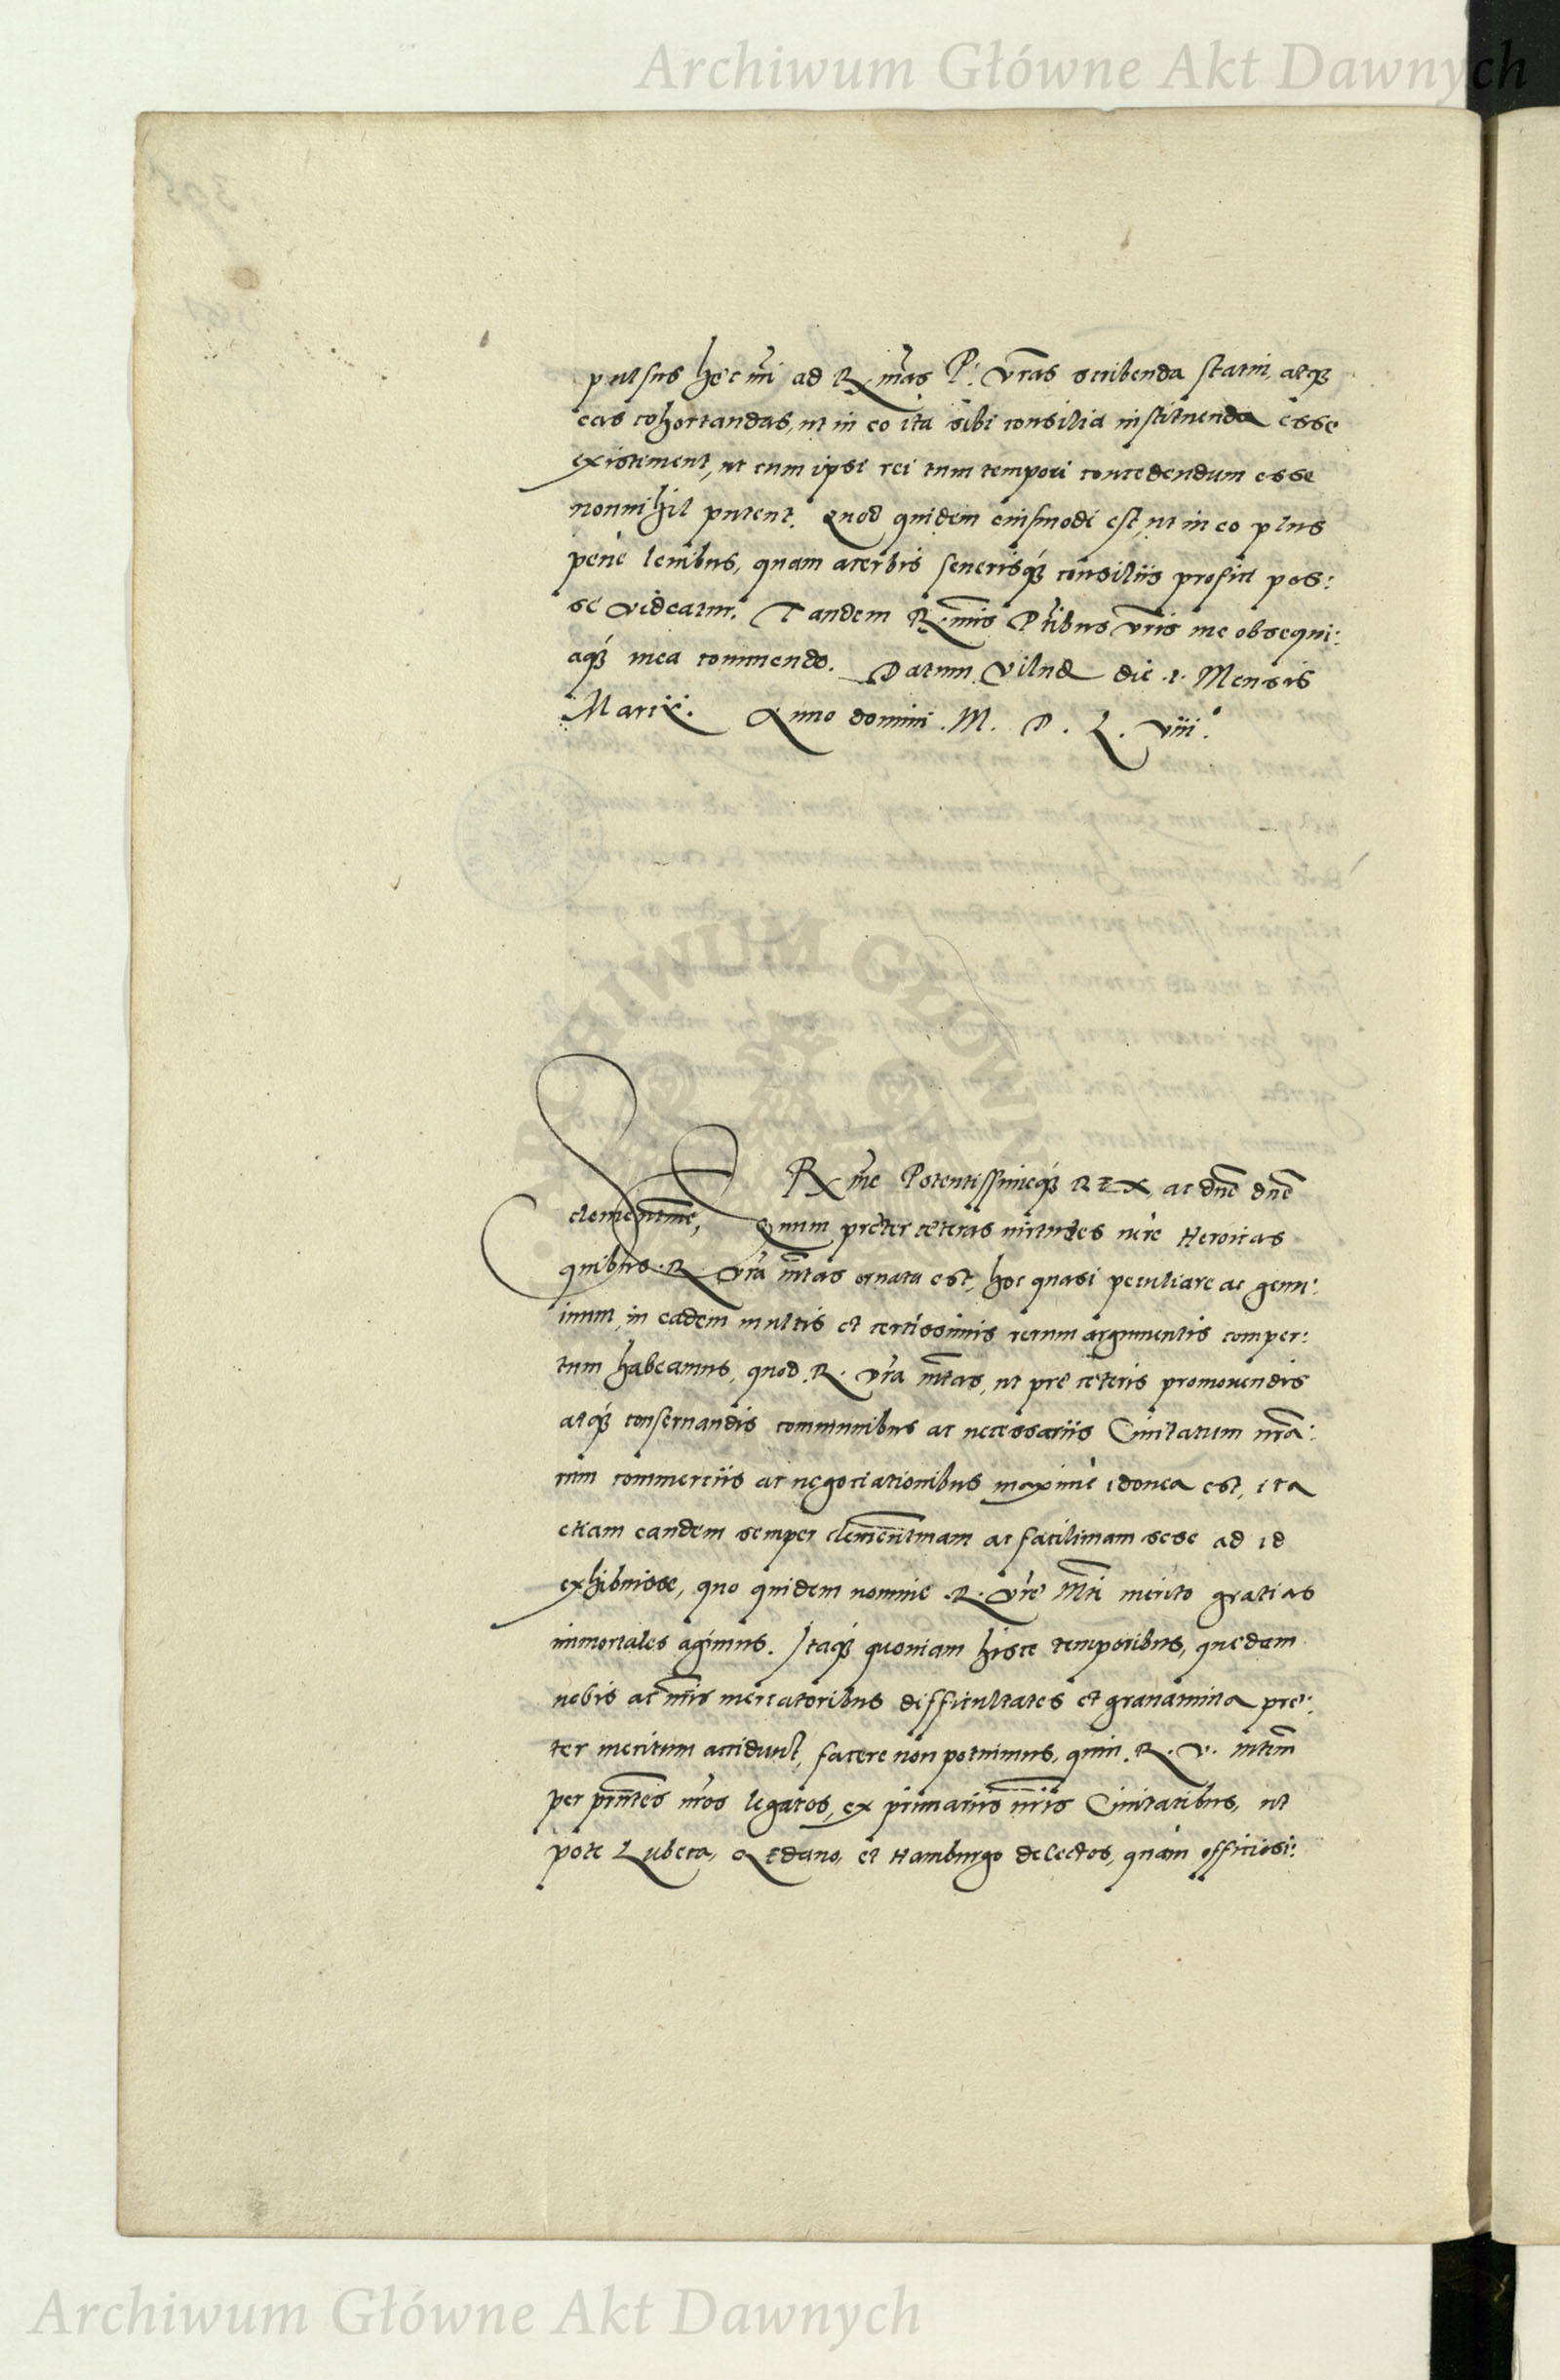 Archiwum Główne Akt Dawnych
pulsus hęc mi ad R. mas P. vras scribenda statui, atq̃
eas cohortandas, ut in eo ita sibi consilia instituenda esse
existiment, ut cum ipsi rei tum tempori concedendum esse
nonnihil putent. Quod quidem eiusmodi est, ut in eo plus
penè lenibus, quam acerbis seuerisq́ consiliis profici pos:
se videatur. Tandem R. mis Ptibus vris me obsequi:
aq́ mea commendo. Datum Vilnę die .1. Mensis
Martii. Anno domini .M. D. L. viii.°
ARCHIWUM GŁÓWNE
Rx me Potentissimeq́ REX, ac dne dne
clementme, Quum pręter cęteras uirtutes uerè Heroicas
quibus .R. Vra mtas ornata est, hoc quasi peculiare ac genu:
inum, in eadem multis et certissimis rerum argumentis comper:
tum habeamus, quod .R. vra mtas, ut prę cęteris promouendis
atq́ conseruandis communibus ac necessariis Ciuitatum nra:
rum commerciis ac negociationibus maximè idonea est, ita
etiam eandem semper clementmam ac facilimam sese ad id
exhibuisse, quo quidem nomine .R. Vrę Mti merito gratias
immortales agimus. Itaq́ quoniam hisce temporibus, quędam
nobis ac nris mercatoribus difficultates et grauamina prę:
ter meritum accidunt, facere non potuimus, quin .R. V. mtem
per pnntes nros legatos, ex primariis nris Ciuitatibus, ut
pote Lubeca, Gedano, et Hamburgo delectos, quàm officiosi:
Archiwum Główne Akt Dawnych